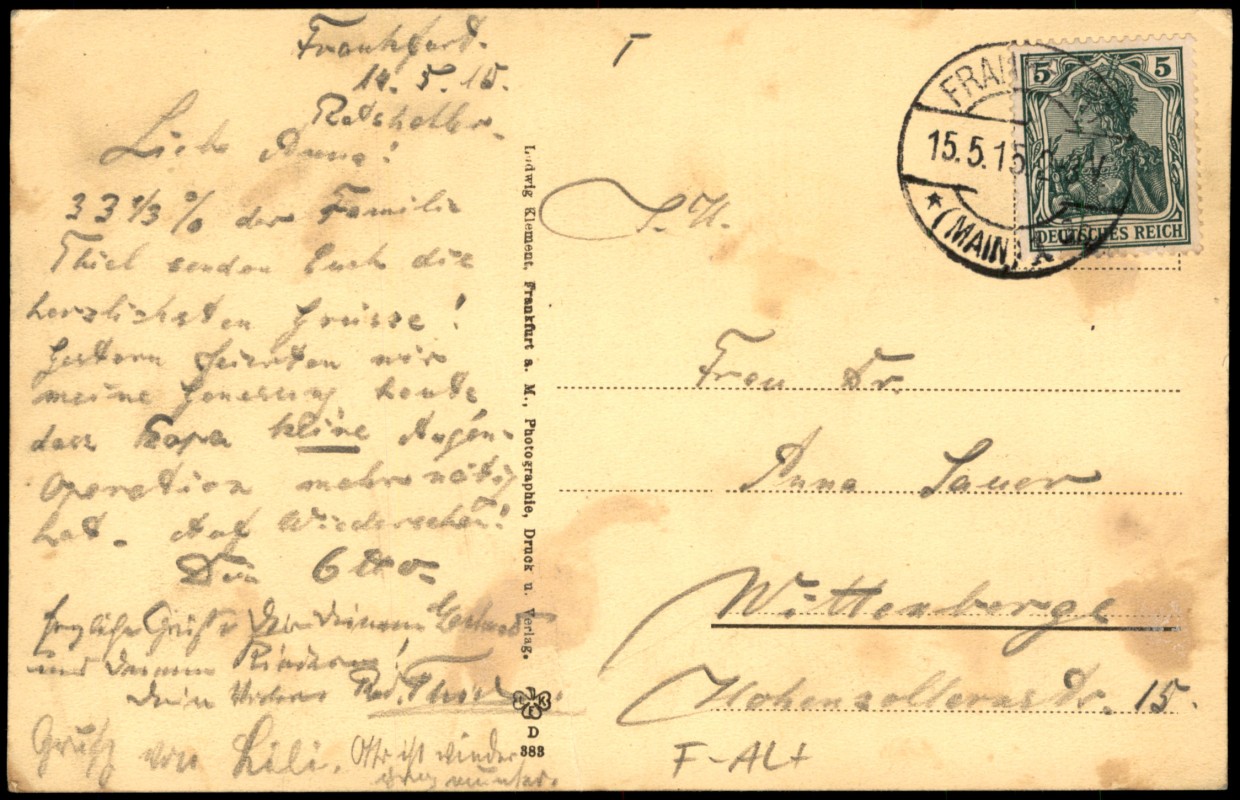 Frankfurt.
14. 5. 15.
Ratskeller.
Liebe Anna!
33 1/3 % der Familie
Thiel senden Euch die
herzlichsten Grüsse!
Gestern feierten wir
meine Genesung heute
dass Papa keine Augen-
Operation mehr nötig
hat. Auf Wiedersehen!
Dein Otto
Herzliche Grüße Dir Deinem
und Deinen Kindern!
Dein
Gruß von Lili. Otto ist wieder
ganz munter.
Ludwig Klement, Frankfurt a. M., Photographie, Druck u. Verlag.
D
383
T
S. H.
FRAN
15.5.15
* (MAIN)
5 5
DEUTSCHES REICH
Frau Dr.
Anna Sauer
Wittenberge
Hohenzollernstr. 15.
F-ALt